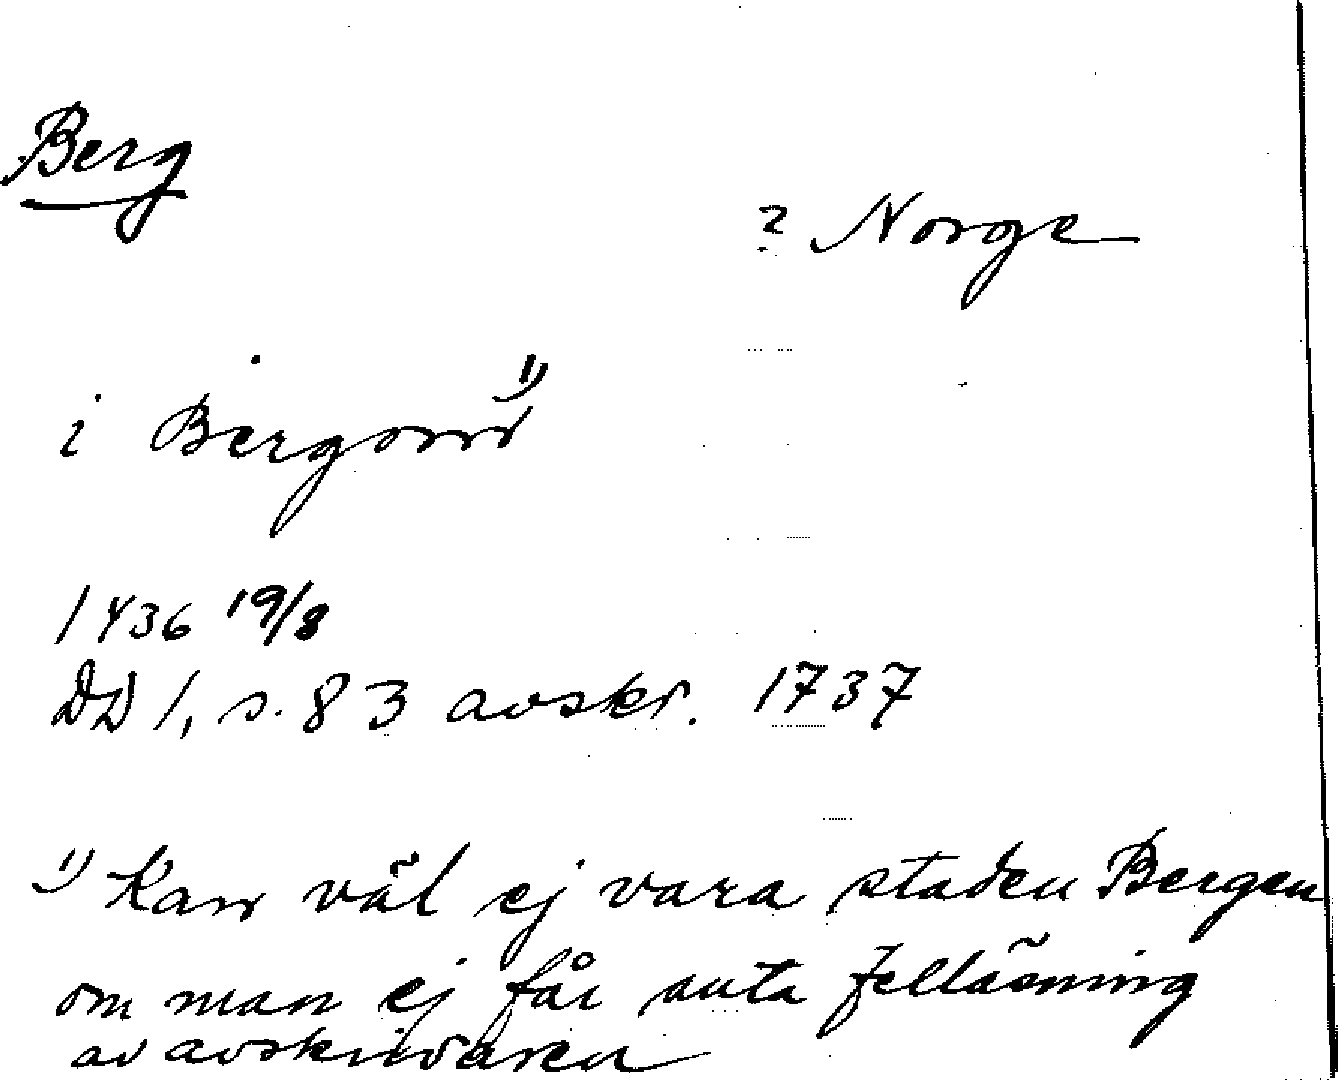 Berg
? Norge
i Bergom 1)
1436 19/8
DD 1, s. 83 avskr. 1737
1) Kan väl ej vara staden Bergen
om man ej får anta felläsning
av avskrivaren